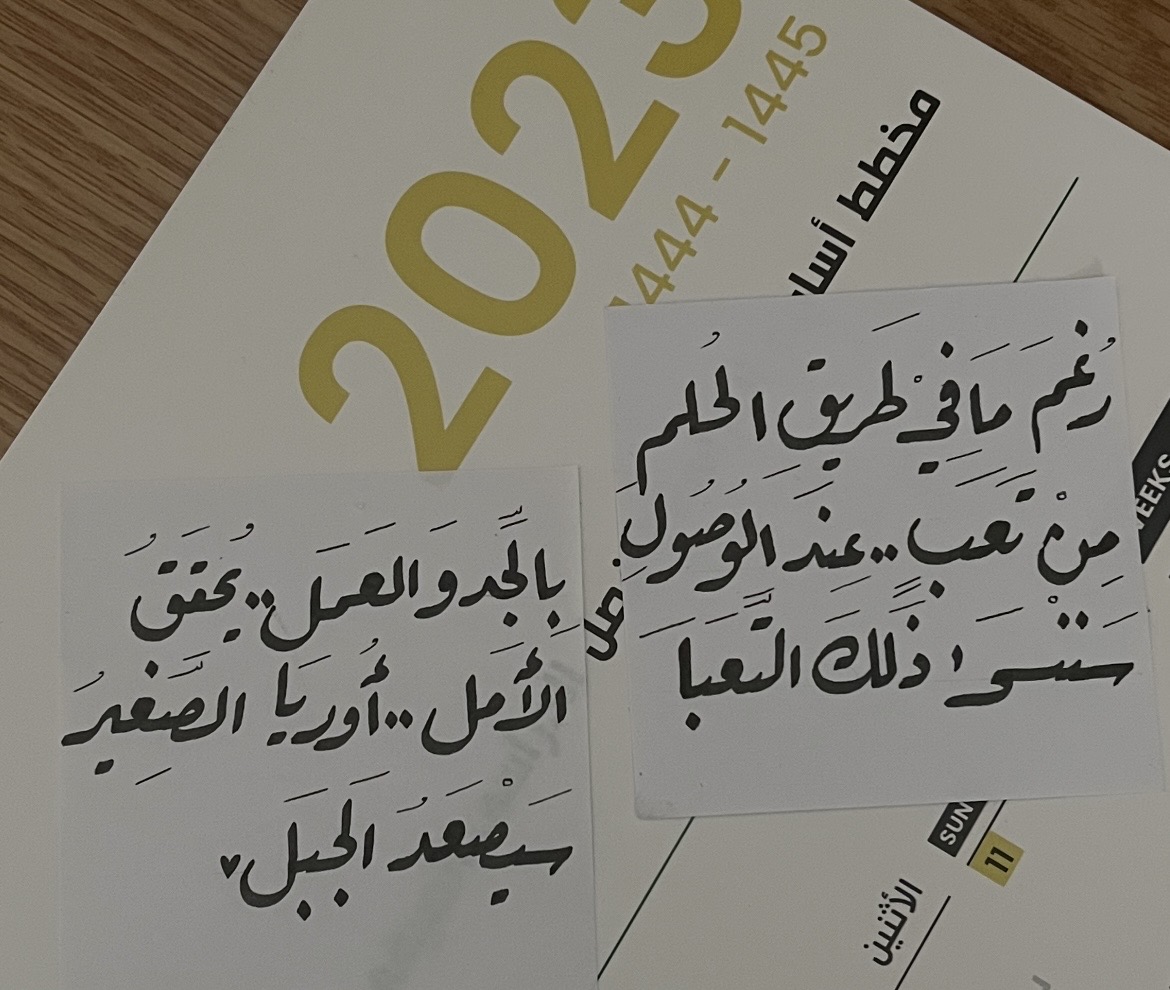 2023
1444 - 1445
مخطط أسا
رُغمَ مَا فِي طريق الحُلم
مِنْ تَعَبٍ.. عِندَ الوُصُولِ
سَتنْسَى ذَلكَ التَّعبَا
بالجَّد و العَمَل.. يُحَققُ
الأَمل.. أُوريَا الصَّغِيرَ
سَيصْعَدُ الجَبَل
WEEKS
SUN
11
الأثنين